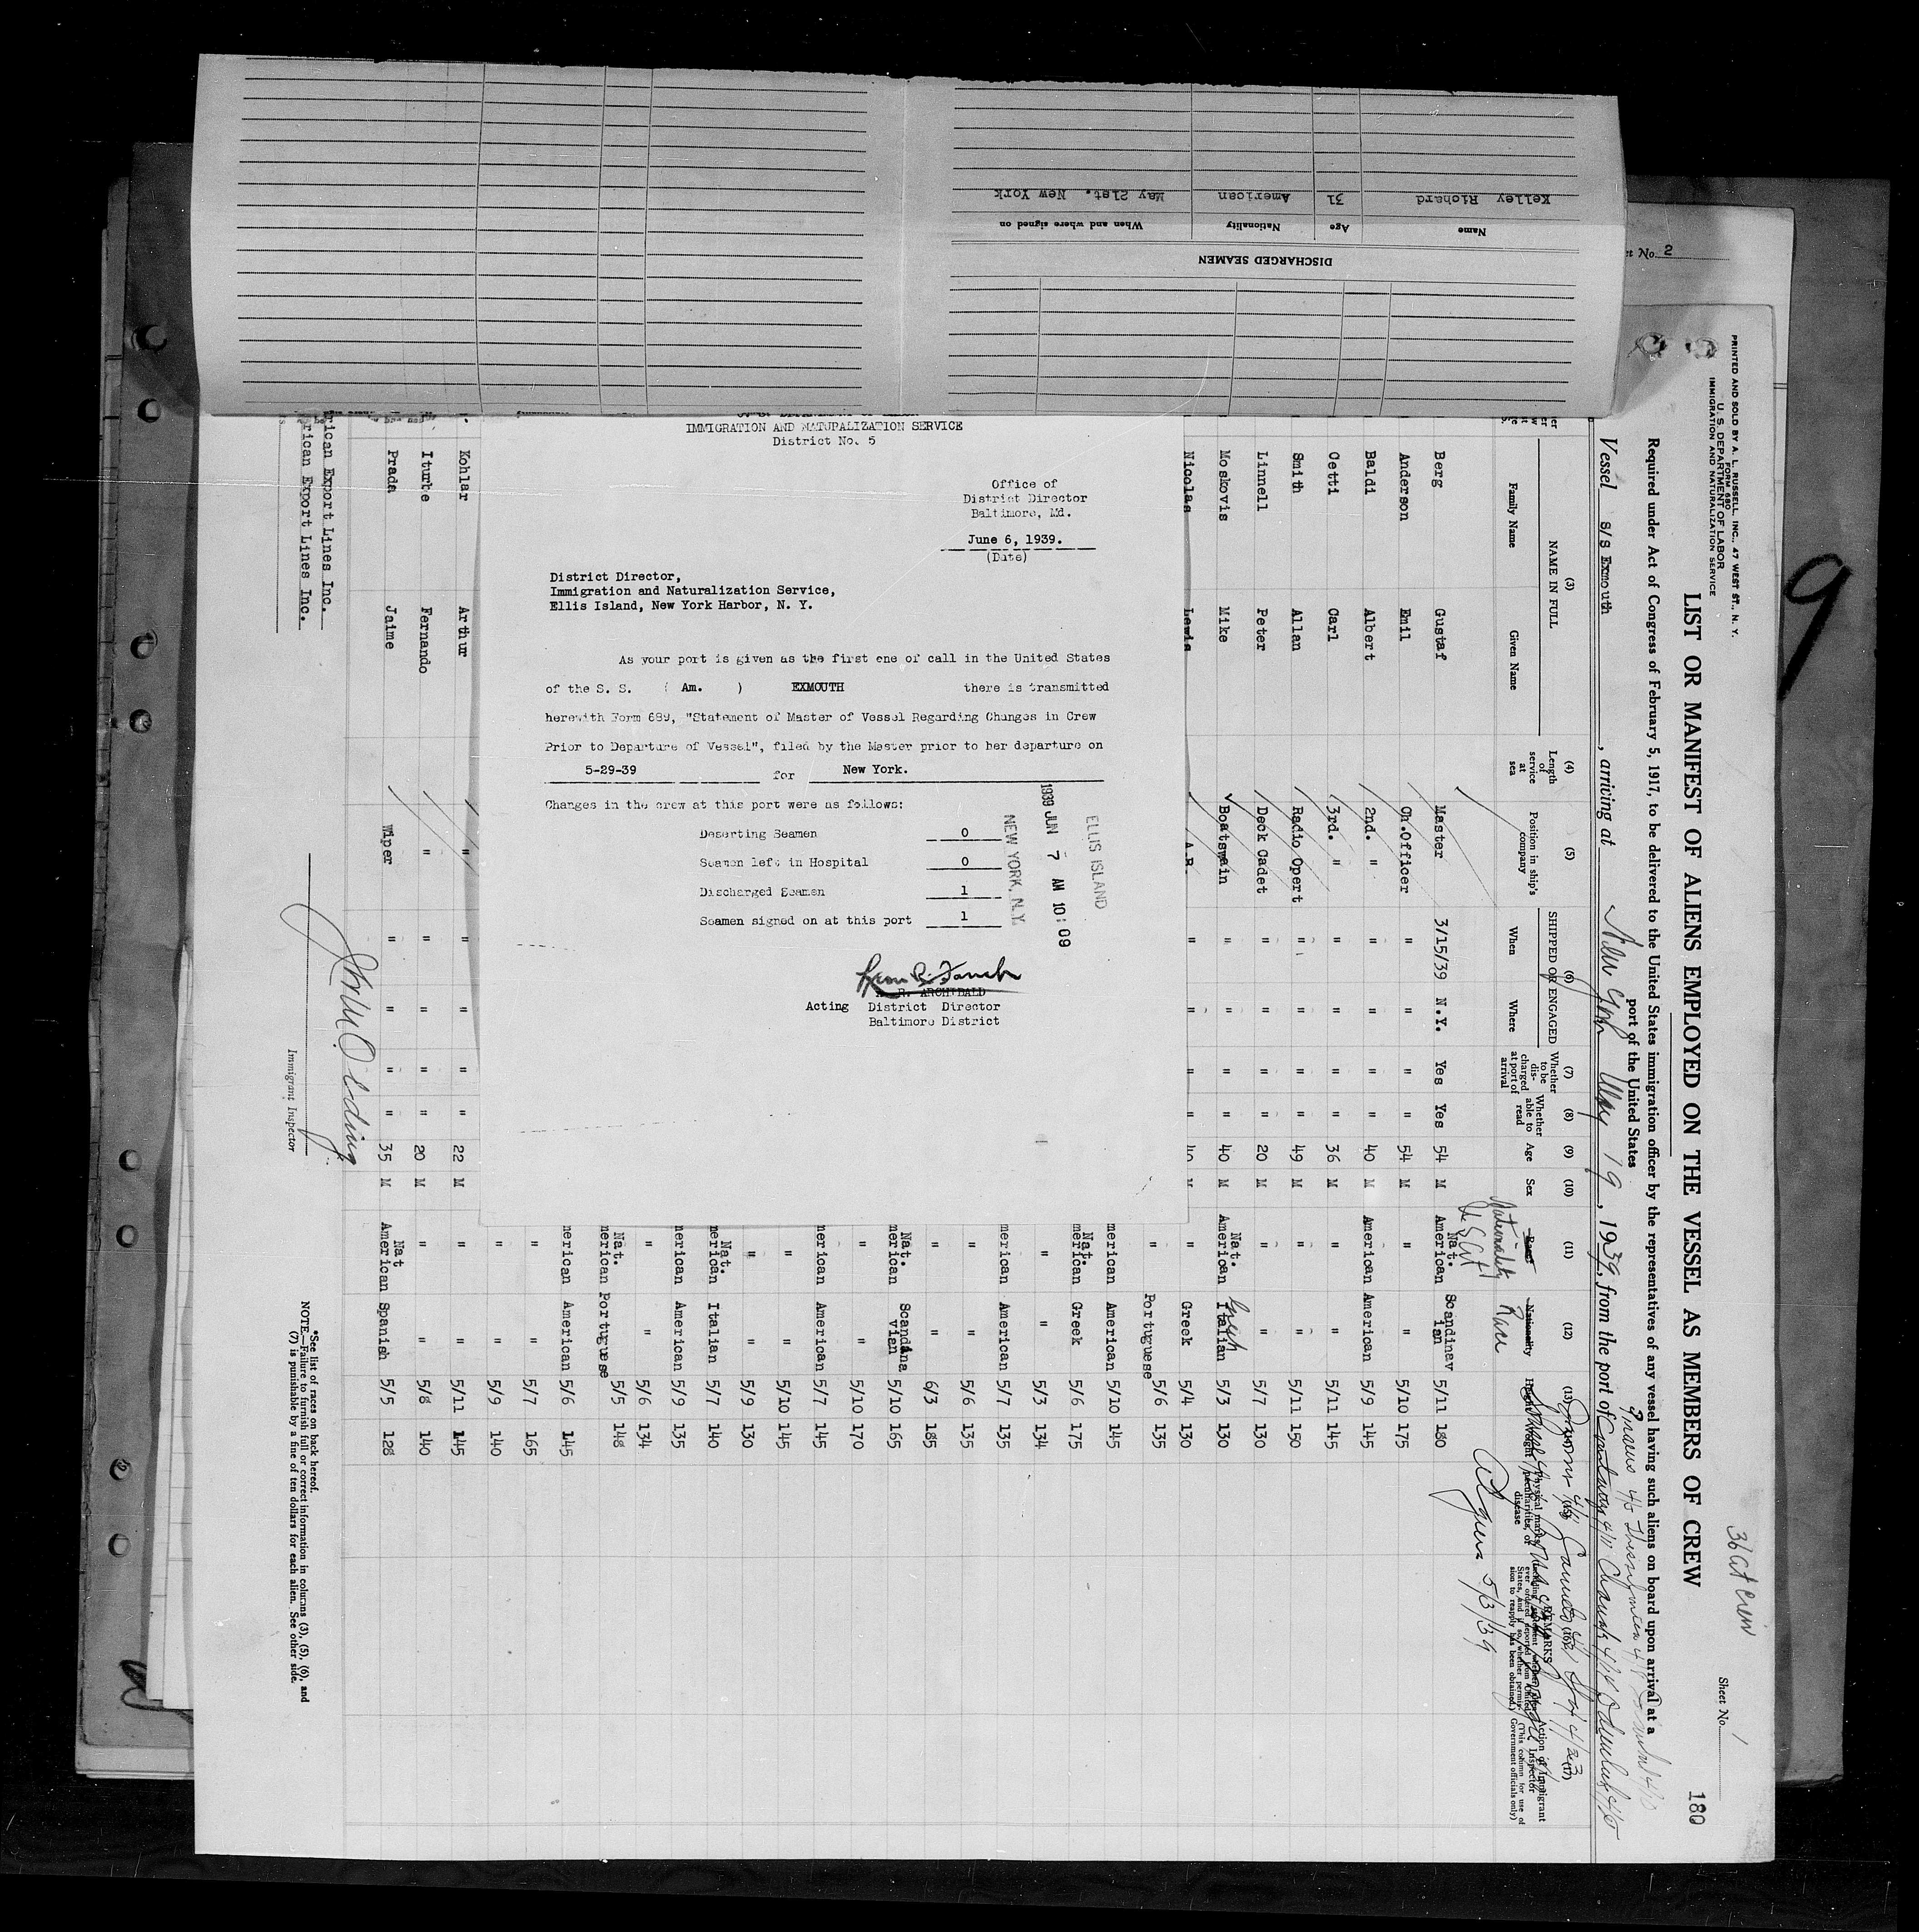 DISCHARGED SEAMEN
Name Age Nationality When and where signed on
Kelley Richard 31 American May 21st. New York
IMMIGRATION AND NATURALIZATION SERVICE
District No. 5
Office of
District Director
Baltimore, Md.
June 6, 1939.
(Date)
District Director,
Immigration and Naturalization Service,
Ellis Island, New York Harbor, N. Y.
As your port is given as the first one of call in the United States
of the S. S. ( Am. ) EXMOUTH there is transmitted
herewith Form 689, "Statement of Master of Vessel Regarding Changes in Crew
Prior to Departure of Vessel", filed by the Master prior to her departure on
5-29-39 for New York.
Changes in the crew at this port were as follows:
Deserting Seamen 0
Seamen left in Hospital 0
Discharged Seamen 1
Seamen signed on at this port 1
ELLIS ISLAND
1939 JUN 7 AM 10:09
NEW YORK, N.Y.
R. ARCHIBALD
Acting District Director
Baltimore District
No. 2
9
PRINTED AND SOLD BY A. L. RUSSELL, INC., 47 WEST ST., N. Y.
FORM 680
U. S. DEPARTMENT OF LABOR
IMMIGRATION AND NATURALIZATION SERVICE
Sheet No. 1
180
LIST OR MANIFEST OF ALIENS EMPLOYED ON THE VESSEL AS MEMBERS OF CREW
Required under Act of Congress of February 5, 1917, to be delivered to the United States immigration officer by the representatives of any vessel having such aliens on board upon arrival at a
port of the United States
Vessel S/S Exmouth, arriving at New York May 19, 1939, from the port of
(3) (4) (5) (6) (7) (8) (9) (10) (11) (12) (13)
NAME IN FULL
Family Name Given Name
Length of service at sea
Position in ship's company
SHIPPED OR ENGAGED
When Where
Whether to be discharged at port of arrival
Whether able to read
Age Sex Race Nationality
Nationality Race
Algiers 5/3/39
Berg Gustaf Master 3/15/39 N.Y. Yes Yes 54 M Nat. American Scandinavian 5/11 180
Anderson Emil Ch.Officer " " " " 54 M " " 5/10 175
Baldi Albert 2nd. " " " " " 40 M American American 5/9 145
Cetti Carl 3rd. " " " " " 36 M " " 5/11 145
Smith Allan Radio Opert " " " " 49 M " " 5/11 150
Linnell Peter Deck Cadet " " " " 20 M " " 5/7 130
Moskovis Mike Boatswain " " " " 40 M Nat. American Italian Greek 5/3 130
Nicolas Lewis A.B. " " " " 40 M " Greek 5/4 130
" Portuguese 5/6 135
merican American 5/10 145
Nat. merican Greek 5/6 175
" " 5/3 134
merican American 5/7 135
" " 5/6 135
" " 6/3 185
Nat. merican Scandinavian 5/10 165
" 5/10 170
merican American 5/7 145
" " 5/10 145
" " 5/9 130
Nat. merican Italian 5/7 140
nerican American 5/9 135
" " 5/6 134
Nat. nerican Portuguese 5/5 148
nerican American 5/6 145
" " 5/7 165
" " 5/9 140
Kohlar Arthur " " " " " 22 M " " 5/11 145
Iturbe Fernando " " " " " 20 M " " 5/8 140
Prada Jaime Wiper " " " " 35 M Nat American Spanish 5/5 128
rican Export Lines Inc.
rican Export Lines Inc.
Immigrant Inspector
*See list of races on back hereof.
NOTE.—Failure to furnish full or correct information in columns (3), (5), (6), and
(7) is punishable by a fine of ten dollars for each alien. See other side.